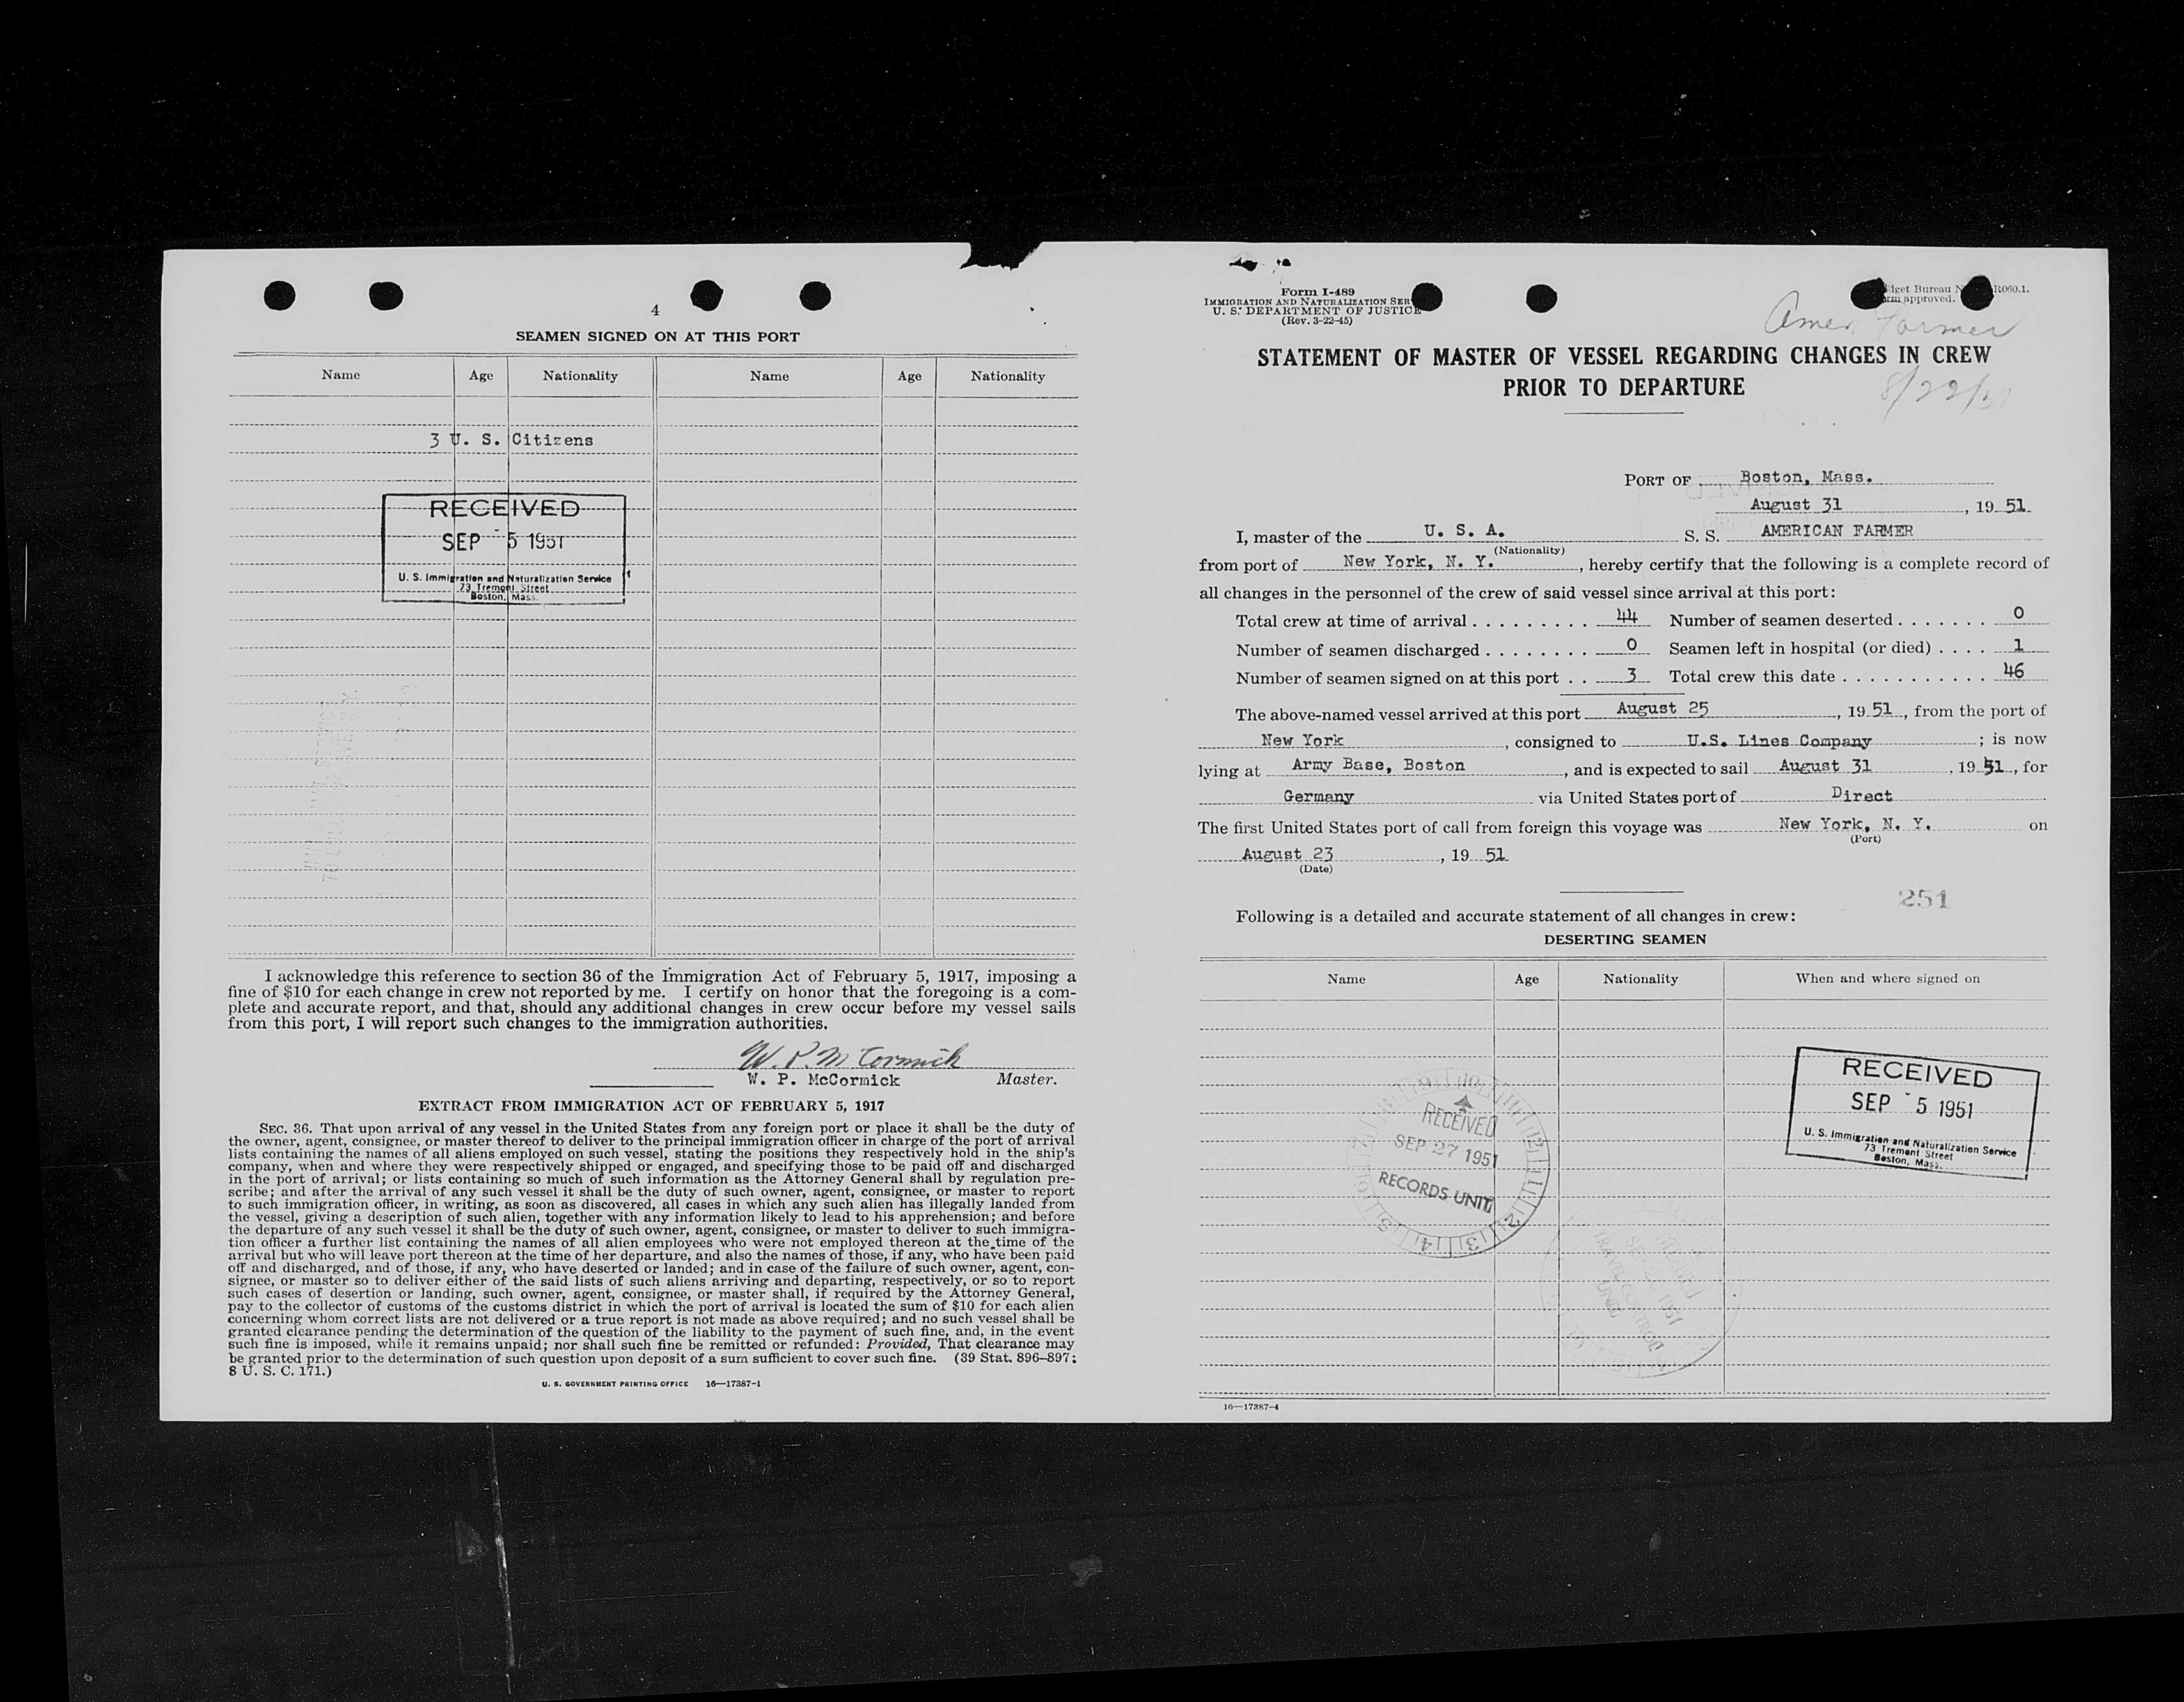 4
SEAMEN SIGNED ON AT THIS PORT
Name Age Nationality Name Age Nationality
3 U. S. Citizens
RECEIVED
SEP 5 1951
U. S. Immigration and Naturalization Service
73 Tremont Street
Boston, Mass.
I acknowledge this reference to section 36 of the Immigration Act of February 5, 1917, imposing a
fine of $10 for each change in crew not reported by me. I certify on honor that the foregoing is a com-
plete and accurate report, and that, should any additional changes in crew occur before my vessel sails
from this port, I will report such changes to the immigration authorities.
W. P. McCormick
W. P. McCormick Master.
EXTRACT FROM IMMIGRATION ACT OF FEBRUARY 5, 1917
SEC. 36. That upon arrival of any vessel in the United States from any foreign port or place it shall be the duty of
the owner, agent, consignee, or master thereof to deliver to the principal immigration officer in charge of the port of arrival
lists containing the names of all aliens employed on such vessel, stating the positions they respectively hold in the ship's
company, when and where they were respectively shipped or engaged, and specifying those to be paid off and discharged
in the port of arrival; or lists containing so much of such information as the Attorney General shall by regulation pre-
scribe; and after the arrival of any such vessel it shall be the duty of such owner, agent, consignee, or master to report
to such immigration officer, in writing, as soon as discovered, all cases in which any such alien has illegally landed from
the vessel, giving a description of such alien, together with any information likely to lead to his apprehension; and before
the departure of any such vessel it shall be the duty of such owner, agent, consignee, or master to deliver to such immigra-
tion officer a further list containing the names of all alien employees who were not employed thereon at the time of the
arrival but who will leave port thereon at the time of her departure, and also the names of those, if any, who have been paid
off and discharged, and of those, if any, who have deserted or landed; and in case of the failure of such owner, agent, con-
signee, or master so to deliver either of the said lists of such aliens arriving and departing, respectively, or so to report
such cases of desertion or landing, such owner, agent, consignee, or master shall, if required by the Attorney General,
pay to the collector of customs of the customs district in which the port of arrival is located the sum of $10 for each alien
concerning whom correct lists are not delivered or a true report is not made as above required; and no such vessel shall be
granted clearance pending the determination of the question of the liability to the payment of such fine, and, in the event
such fine is imposed, while it remains unpaid; nor shall such fine be remitted or refunded: Provided, That clearance may
be granted prior to the determination of such question upon deposit of a sum sufficient to cover such fine. (39 Stat. 896–897;
8 U. S. C. 171.)
U. S. GOVERNMENT PRINTING OFFICE 16—17387-1
Form I-489
IMMIGRATION AND NATURALIZATION SER
U. S. DEPARTMENT OF JUSTICE
(Rev. 3-22-45)
Bureau R060.1.
approved.
Amer. Farmer
STATEMENT OF MASTER OF VESSEL REGARDING CHANGES IN CREW
PRIOR TO DEPARTURE
8/22/51
PORT OF Boston, Mass.
August 31, 19 51
I, master of the U. S. A. S. S. AMERICAN FARMER
(Nationality)
from port of New York, N. Y., hereby certify that the following is a complete record of
all changes in the personnel of the crew of said vessel since arrival at this port:
Total crew at time of arrival . . . . . . . . . 44 Number of seamen deserted . . . . . . . 0
Number of seamen discharged . . . . . . . . 0 Seamen left in hospital (or died) . . . . 1
Number of seamen signed on at this port . . 3 Total crew this date . . . . . . . . . . . 46
The above-named vessel arrived at this port August 25, 19 51, from the port of
New York, consigned to U.S. Lines Company; is now
lying at Army Base, Boston, and is expected to sail August 31, 19 51, for
Germany via United States port of Direct
The first United States port of call from foreign this voyage was New York, N. Y. on
(Port)
August 23, 19 51
(Date)
251
Following is a detailed and accurate statement of all changes in crew:
DESERTING SEAMEN
Name Age Nationality When and where signed on
RECEIVED
SEP 5 1951
U. S. Immigration and Naturalization Service
73 Tremont Street
Boston, Mass.
RECEIVED
SEP 27 1951
RECORDS UNIT
TRAVEL CONTROL
UNIT
16—17387-4